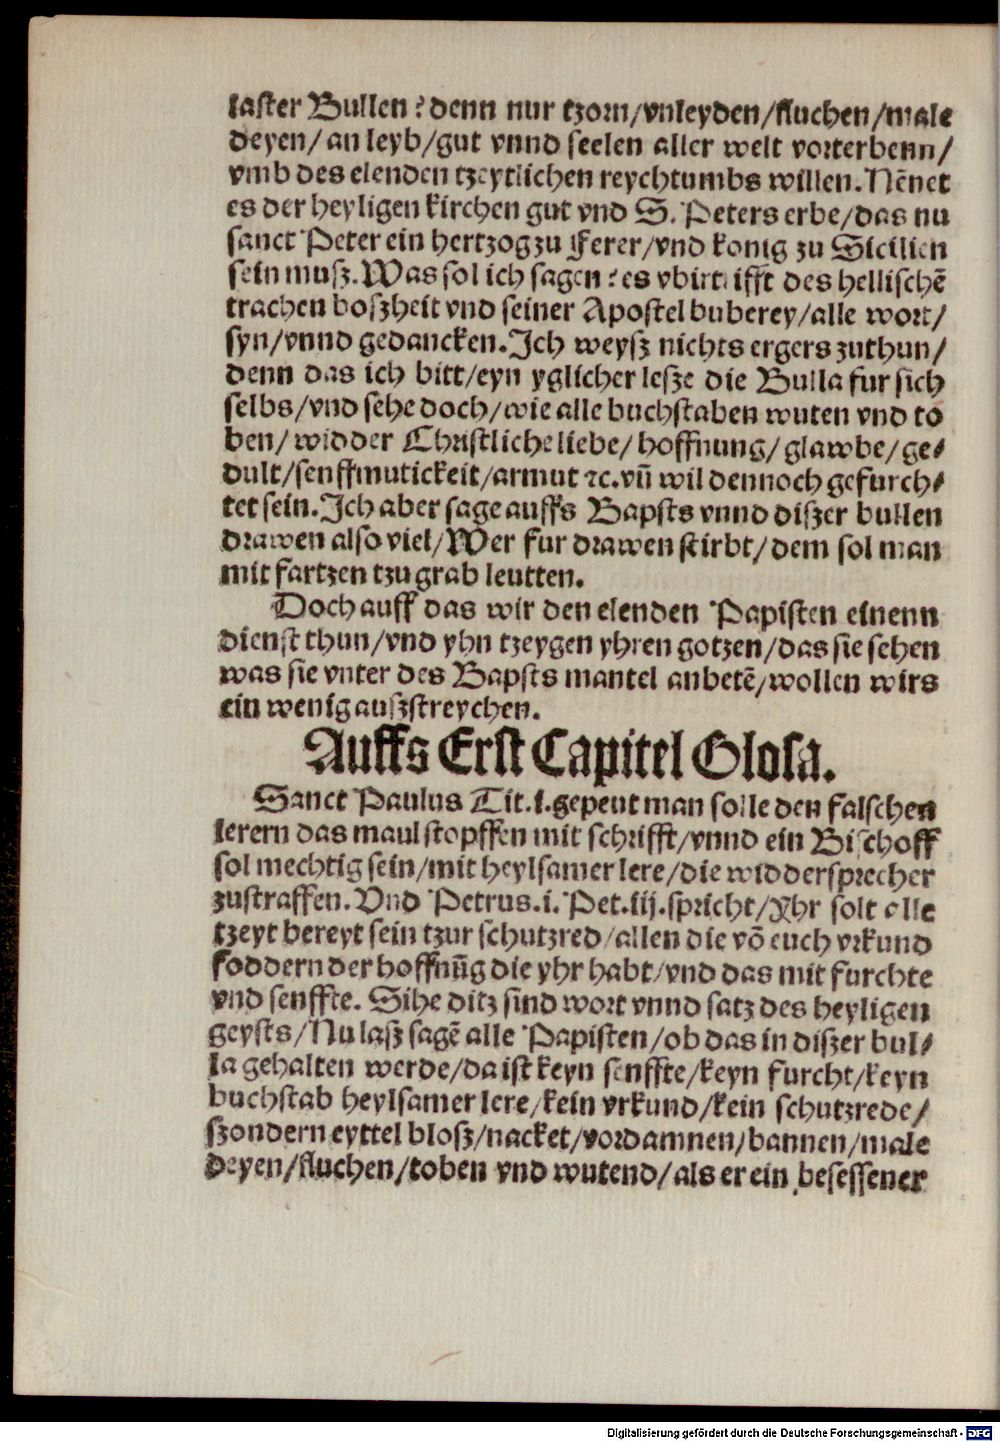 laster Bullen? denn nur tzorn/vnleyden/fluchen/male
deyen/ an leyb/gut vnnd seelen aller welt vorterbenn/
vmb des elenden tzeytlichen reychtumbs willen. Nēnet
es der heyligen kirchen gut vnd S. Peters erbe/das nu
sanct Peter ein hertzog zu Ferer/vnd konig zu Sicilien
sein musz. Was sol ich sagen? es vbirtrifft des hellischē
trachen boszheit vnd seiner Apostel buberey/alle wort/
syn/vnnd gedancken. Ich weysz nichts ergers zuthun/
denn das ich bitt/eyn yglicher lesze die Bulla fur sich
selbs/vnd sehe doch/wie alle buchstaben wuten vnd to
ben/ widder Christliche liebe/ hoffnung/ glawbe/ ge⸗
dult/senffmutickeit/armut ⁊c. vn̄ wil dennoch gefurch⸗
tet sein. Ich aber sage auffs Bapsts vnnd diszer bullen
drawen also viel/Wer fur drawen stirbt/dem sol man
mit fartzen tzu grab leutten.
Doch auff das wir den elenden Papisten einenn
dienst thun/vnd yhn tzeygen yhren gotzen/das sie sehen
was sie vnter des Bapsts mantel anbetē/wollen wirs
ein wenig auszstreychen.
Auffs Erst Capitel Glosa.
Sanct Paulus Tit. i. gepeut man solle den falschen
lerern das maul stopffen mit schrifft/vnnd ein Bischoff
sol mechtig sein/mit heylsamer lere/die widdersprecher
zustraffen. Vnd Petrus. i. Pet. iij. spricht/Yhr solt alle
tzeyt bereyt sein tzur schutzred/allen die vō euch vrkund
foddern der hoffnūg die yhr habt/vnd das mit furchte
vnd senffte. Sihe ditz sind wort vnnd satz des heyligen
geysts/Nu lasz sagē alle Papisten/ob das in diszer bul⸗
la gehalten werde/da ist keyn senffte/keyn furcht/keyn
buchstab heylsamer lere/kein vrkund/kein schutzrede/
szondern eyttel blosz/nacket/vordamnen/bannen/male
deyen/fluchen/toben vnd wutend/als er ein besessener
Digitalisierung gefördert durch die Deutsche Forschungsgemeinschaft - DFG